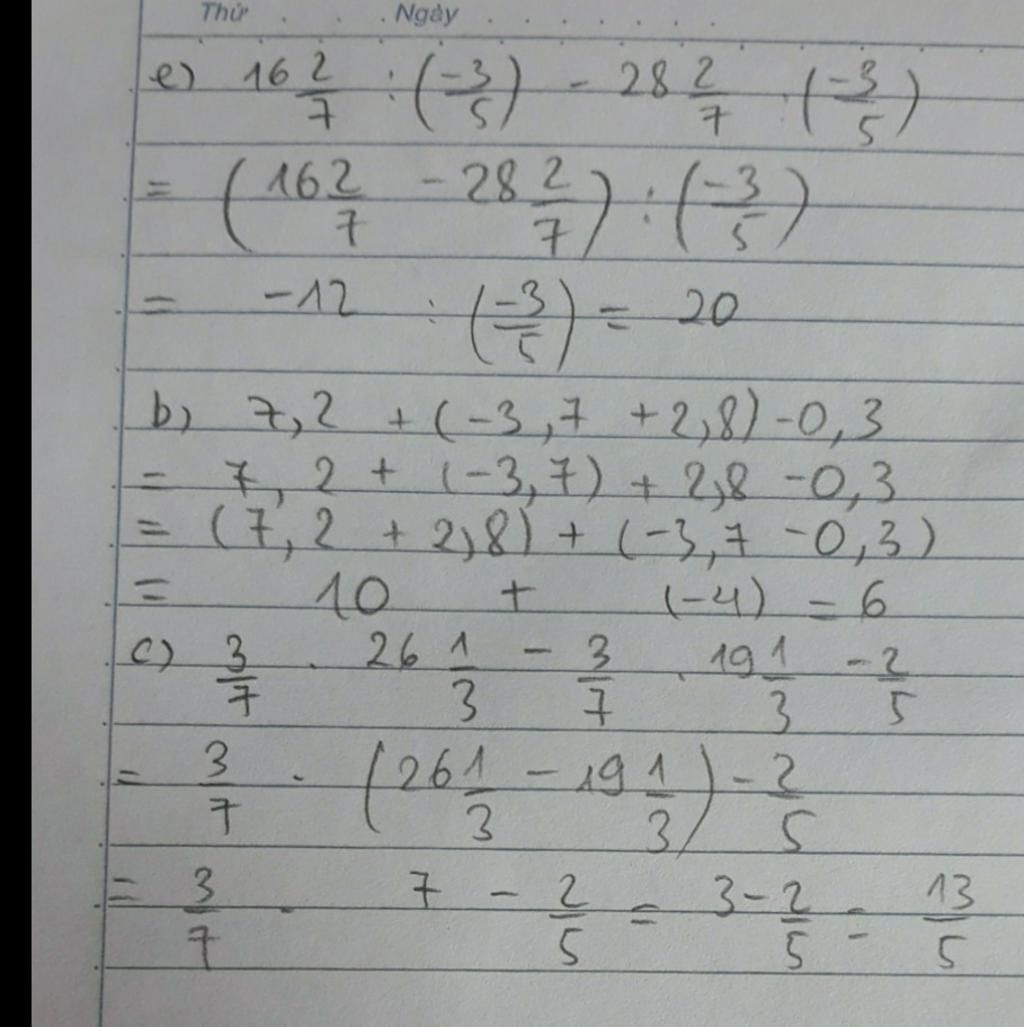 Thứ . . . Ngày . . . . . . .
e) 16 2/7 : (-3/5) - 28 2/7 . (-3/5)
= (16 2/7 - 28 2/7) : (-3/5)
= -12 : (-3/5) = 20
b) 7,2 + (-3,7 + 2,8) - 0,3
= 7,2 + (-3,7) + 2,8 - 0,3
= (7,2 + 2,8) + (-3,7 - 0,3)
= 10 + (-4) = 6
c) 3/7 . 26 1/3 - 3/7 . 19 1/3 - 2/5
= 3/7 . (26 1/3 - 19 1/3) - 2/5
= 3/7 . 7 - 2/5 = 3 - 2/5 = 13/5